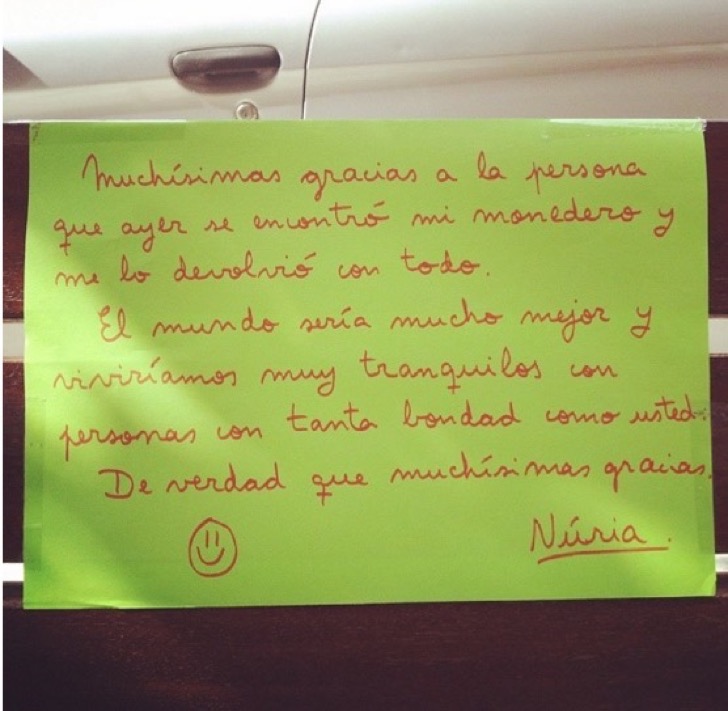 Muchísimas gracias a la persona
que ayer se encontró mi monedero y
me lo devolvió con todo.
El mundo sería mucho mejor y
viviríamos muy tranquilos con
personas con tanta bondad como usted.
De verdad que muchísimas gracias.
Núria.